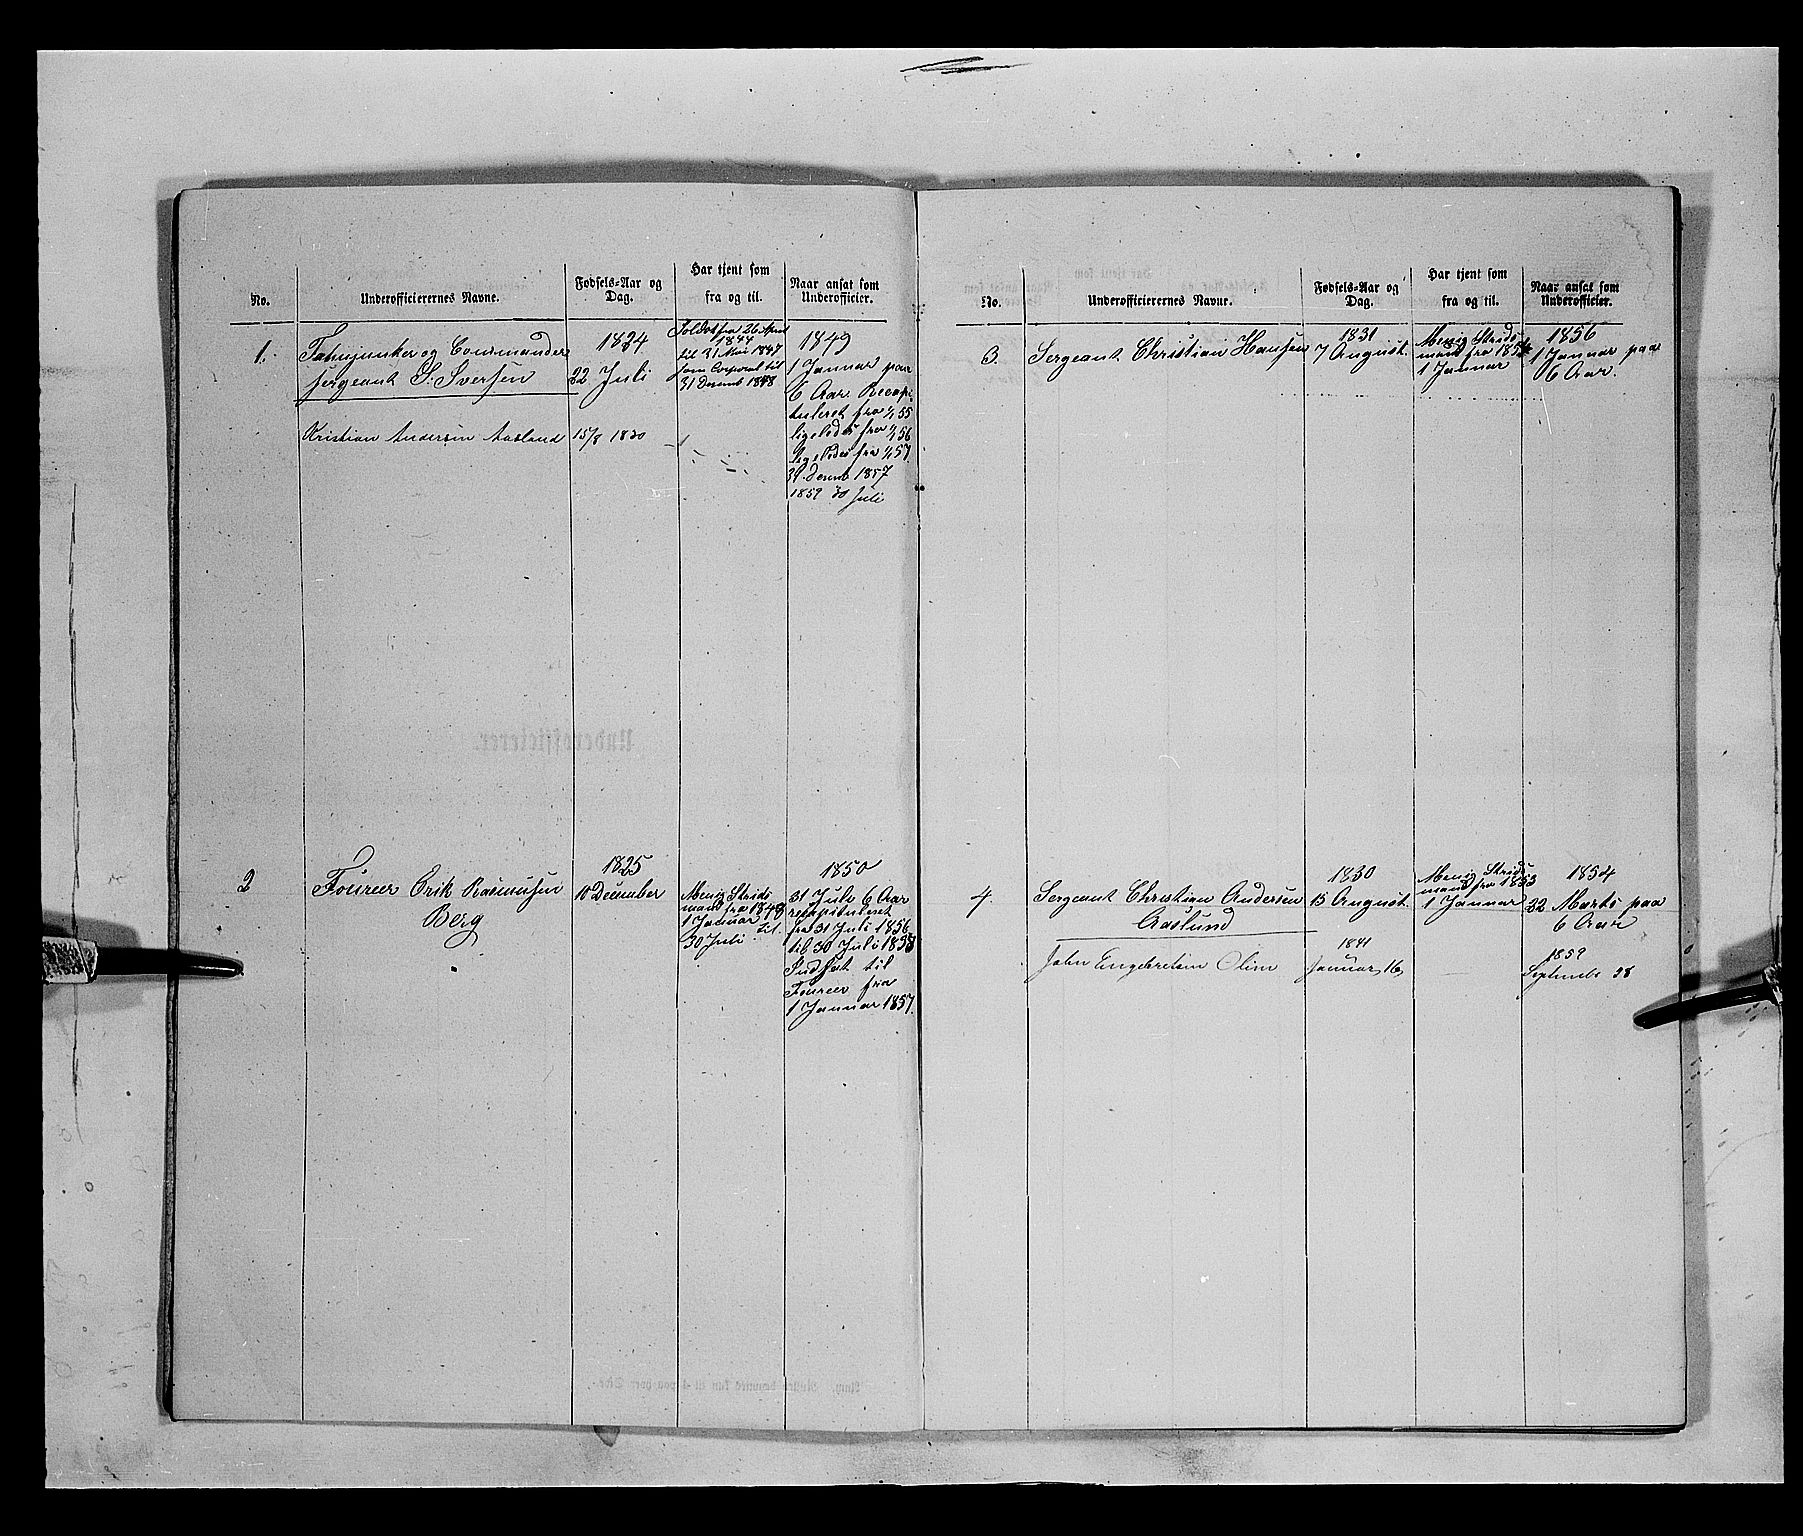 No.
Underofficierernes Navne.
Fødsels-Aar og
Dag.
Har tjent som
fra og til.
Naar ansat som
Underofficier.
1.
Fahnjunker og Commandeer
sergeant S. Iversen
1824
22 Juli
Soldat fra 26 April
1844
til 31 Mai 1847
som Corporal til
31 Decemb 1848
1849
1 Januar paa
6 Aar. Recapi-
tuleret fra 1/1 55
ligeledes fra 1/1 56
Ligeledes fra 1/1 57
31 Decemb 1857
1859 30 Juli
Kristian Andersen Aasland
15/8 1830
2
Foureer Erik Rasmusen
Berg
1825
10 December
Menig Strids
mand fra 1848
1 Januar til
30 Juli
1850
31 Juli 6 Aar
recapituleret
fra 31 Juli 1856
til 30 Juli 1858
Indsat til
Foureer fra
1 Januar 1857.
No.
Underofficierernes Navne.
Fødsels-Aar og
Dag.
Har tjent som
fra og til.
Naar ansat som
Underofficier.
3.
Sergeant Christian Hansen
1831
7 August.
Menig Strids
mand fra 1854
1 Januar
1856
1 Januar paa
6 Aar.
4.
Sergeant Christian Andersen
Aaslund
1830
15 August.
Menig Strids
mand fra 1853
1 Januar
1854
22 Marts paa
6 Aar
John Engebretsen Olim
1841
Januar 16
1859
September 28